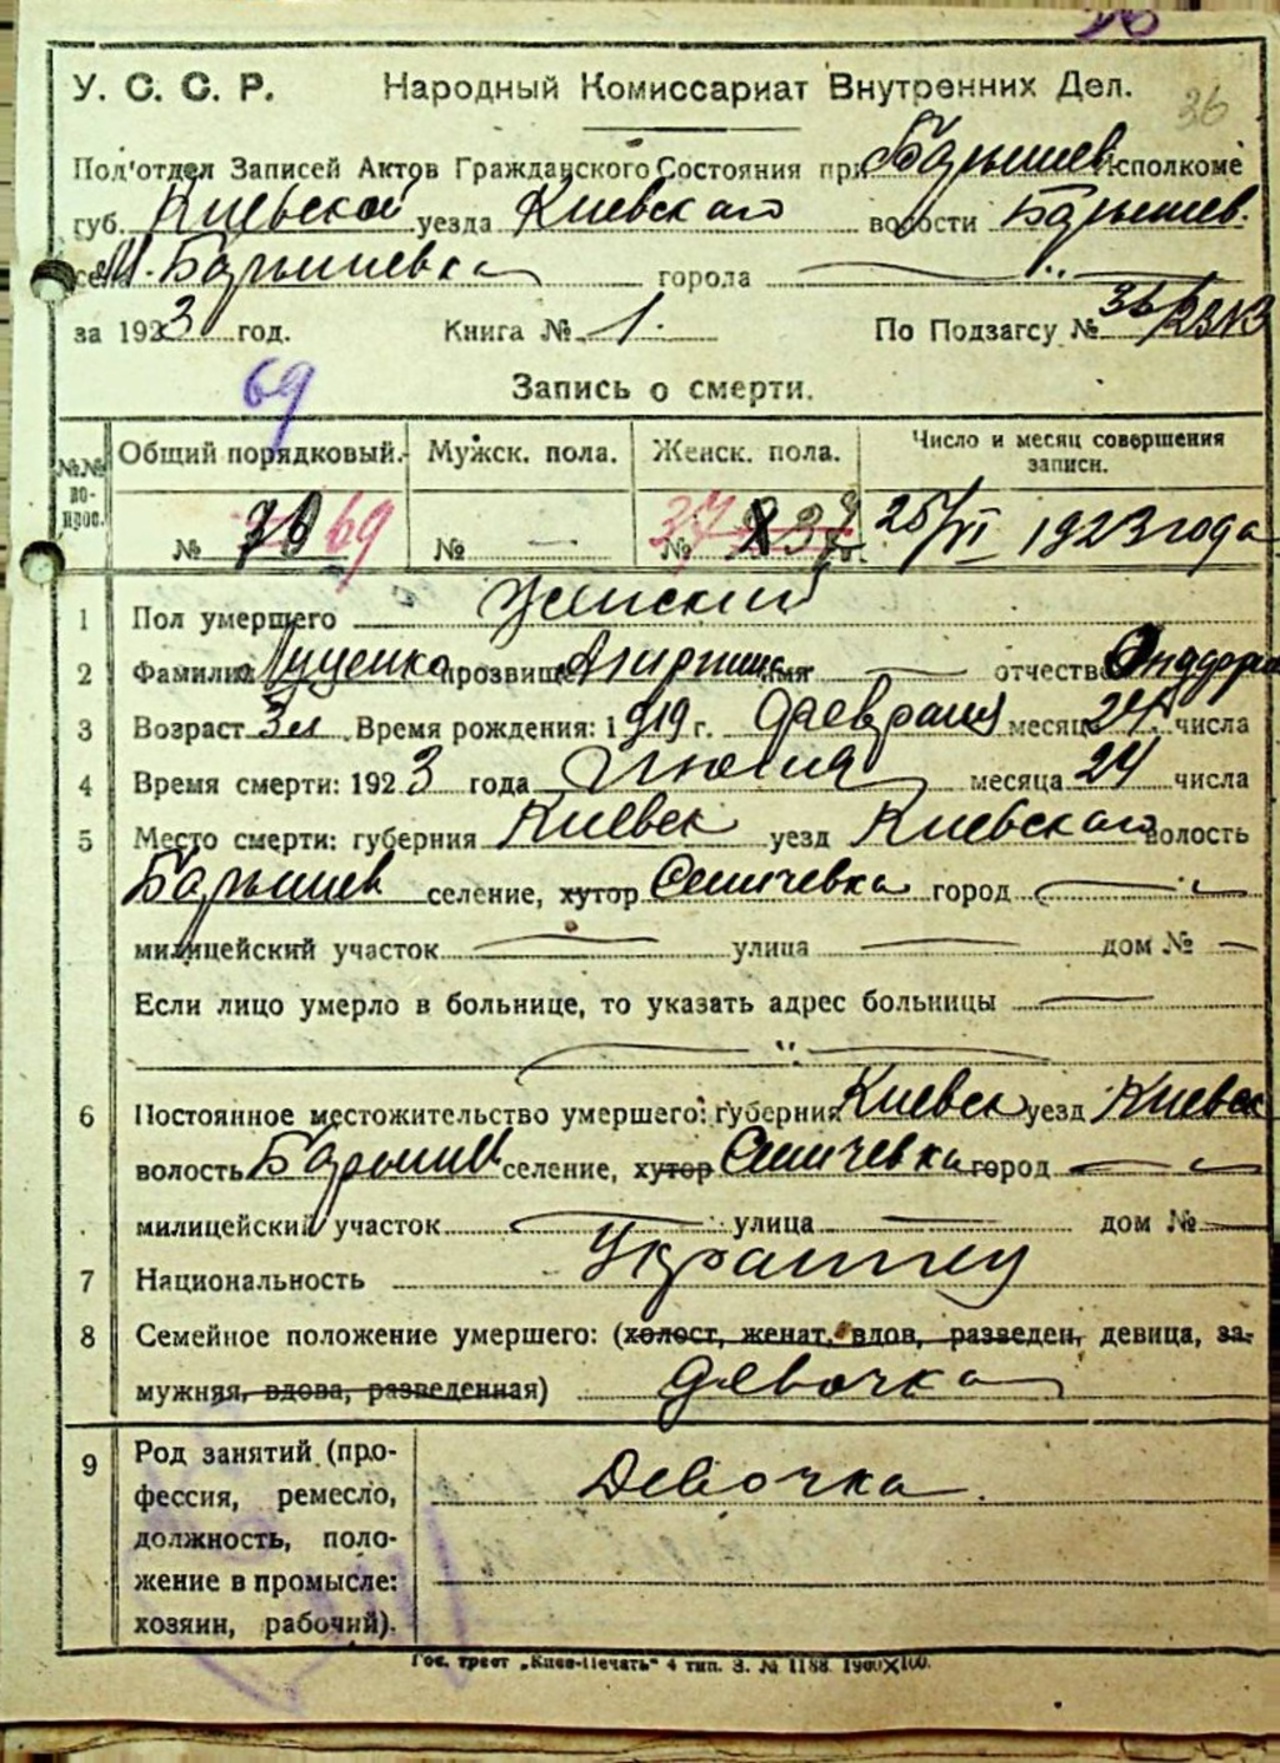 36
У. С. С. Р. Народный Комиссариат Внутренних Дел.
Под'отдел Записей Актов Гражданского Состояния при Барышев Исполкоме
губ. Киевской уезда Киевского волости Барышев.
М. Барышевка города
за 1923 год. Книга № 1. По Подзагсу № 36
69
Запись о смерти.
№№ вопрос. Общий порядковый. Мужск. пола. Женск. пола. Число и месяц совершения записи.
№ 70 69 № — 37 № 25/VI 1923 года
1 Пол умершего Женский
2 Фамилия Луценко прозвище имя — отчество
3 Возраст 3 л Время рождения: 1919 г. февраля месяца 24 числа
4 Время смерти: 1923 года Июня месяца 24 числа
5 Место смерти: губерния Киевск уезд Киевского волость
Барышев селение, хутор Сеничевка город —
милицейский участок — улица — дом № —
Если лицо умерло в больнице, то указать адрес больницы —
6 Постоянное местожительство умершего: губерния Киевск уезд Киевск
волость Барышев селение, хутор Сеничевка город —
милицейский участок — улица — дом № —
7 Национальность
8 Семейное положение умершего: (холост, женат, вдов, разведен, девица, за-
мужняя, вдова, разведенная) девочка
9 Род занятий (про-
фессия, ремесло, Девочка.
должность, поло-
жение в промысле:
хозяин, рабочий).
Гос. трест „Киев-Печать“ 4 тип. З. № 1188. 1900X100.